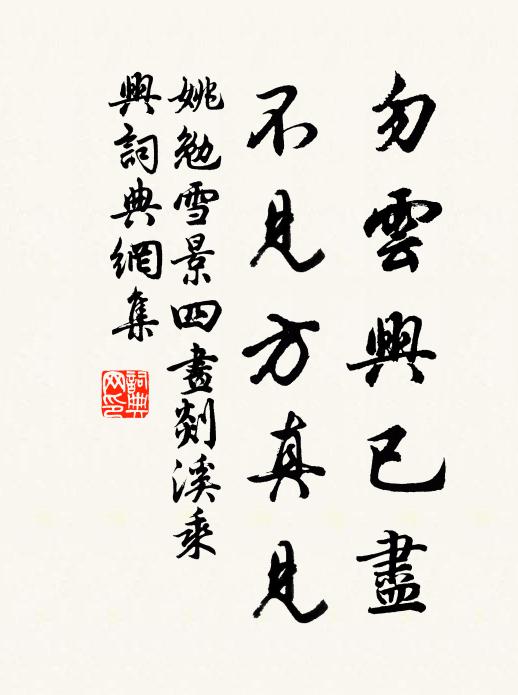 勿雲興已盡
不見方真見
姚勉雪景四畫剡溪乘
興詞典網集
詞典網印